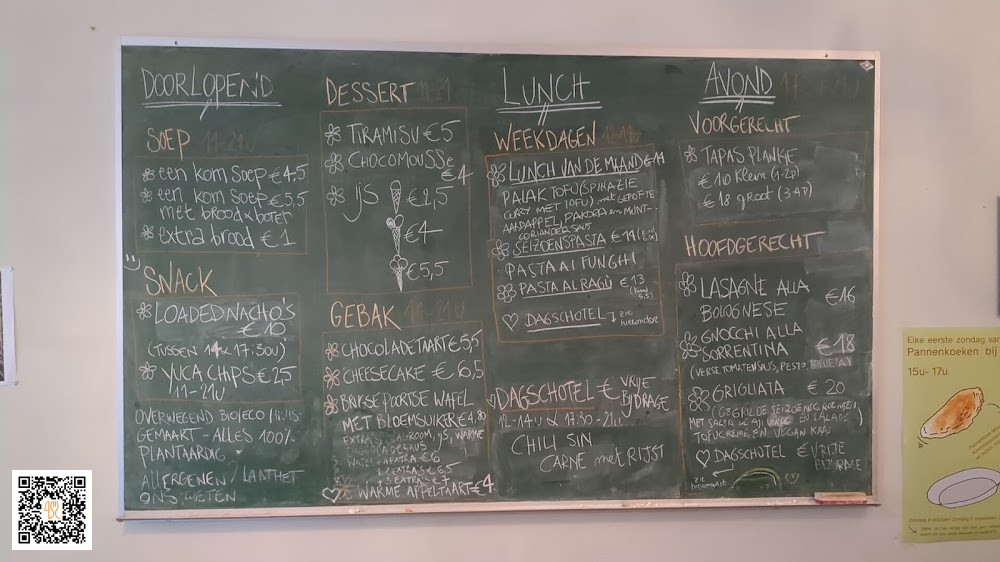 DOORLOPEND
SOEP 11-21u
een kom soep €4,5
een kom soep €5,5
met brood & boter
extra brood €1
SNACK
LOADED NACHO'S
€10
(TUSSEN 14 & 17:30U)
YUCA CHIPS €2,5
11-21U
OVERWEGEND BIO/ECO
GEMAAKT - ALLES 100%
PLANTAARDIG
ALLERGENEN? LAAT HET
ONS WETEN
DESSERT 11-21
TIRAMISU €5
CHOCOMOUSSE
€4
IJS €2,5
€4
€5,5
GEBAK 11-21U
CHOCOLADETAART €5,5
CHEESECAKE €6,5
BRUSSE POORTSE WAFEL
MET BLOEMSUIKER €4,80
WARME APPELTAART €4
LUNCH
WEEKDAGEN
LUNCH VAN DE MAAND €14
PALAK TOFU (SPINAZIE
CURRY MET TOFU) met GEPOFTE
AARDAPPEL, PAKORA en MUNT-
CORIANDERSAUS
SEIZOENSPASTA €14
PASTA AI FUNGHI
PASTA AL RAGÙ €13
DAGSCHOTEL zie
hieronder
DAGSCHOTEL - € VRIJE
BIJDRAGE
12-14U & 17:30-21U
CHILI SIN
CARNE met RIJST
AVOND 17
VOORGERECHT
TAPAS PLANKJE
€10 klein (1-2p)
€18 groot (3-4p)
HOOFDGERECHT
LASAGNE ALLA
BOLOGNESE €16
GNOCCHI ALLA
SORRENTINA €18
(VERSE TOMATENSAUS, PESTO,
GRIGLIATA €20
(GEGRILDE SEIZOENSGROENTEN
MET SALSA DE AJI EN SALADE)
TOFUCREME EN VEGAN KAAS
DAGSCHOTEL € VRIJE
BIJDRAGE
zie
Elke eerste zondag van
Pannenkoeken bij
15u- 17u